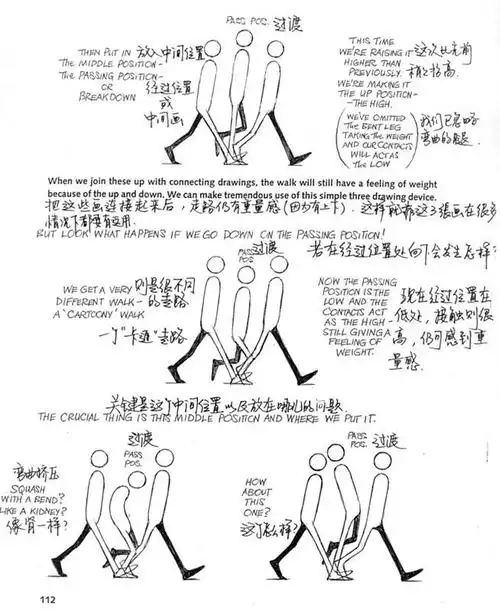 PASS POS. 过渡
THEN PUT IN 放入中间位置
THE MIDDLE POSITION-
THE PASSING POSITION- 经过位置
OR 或
BREAKDOWN 中间画
THIS TIME
WE'RE RAISING IT 这次比先前
HIGHER THAN
PREVIOUSLY. 稍稍抬高.
WE'RE MAKING IT
THE UP POSITION-
-THE HIGH.
(WE'VE OMITTED
THE BENT LEG 我们已忽略
TAKING THE WEIGHT 弯曲的腿
AND OUR CONTACTS
WILL ACT AS
THE LOW)
When we join these up with connecting drawings, the walk will still have a feeling of weight
because of the up and down. We can make tremendous use of this simple three drawing device.
把这些画连接起来后，走路仍有重量感(因为有上下). 这样就有这3张画在很多
情况下都有运用.
BUT LOOK WHAT HAPPENS IF WE GO DOWN ON THE PASSING POSITION!
若在经过位置处向下会发生怎样:
PASS POS. 过渡
WE GET A VERY 则是很不同
DIFFERENT WALK- 的走路
A 'CARTOONY' WALK
一个"卡通"走路
NOW THE PASSING
POSITION IS THE 现在经过位置在
LOW AND THE
CONTACTS ACT 低处，接触则很
AS THE HIGH-
STILL GIVING A 高，仍可感到重
FEELING OF
WEIGHT. 量感.
关键是这个中间位置以及放在哪儿的问题.
THE CRUCIAL THING IS THIS MIDDLE POSITION AND WHERE WE PUT IT.
过渡
PASS
POS.
弯曲挤压
SQUASH
WITH A BEND?
LIKE A KIDNEY?
像肾一样?
PASS POS. 过渡
HOW
ABOUT
THIS
ONE?
这个怎么样?
112